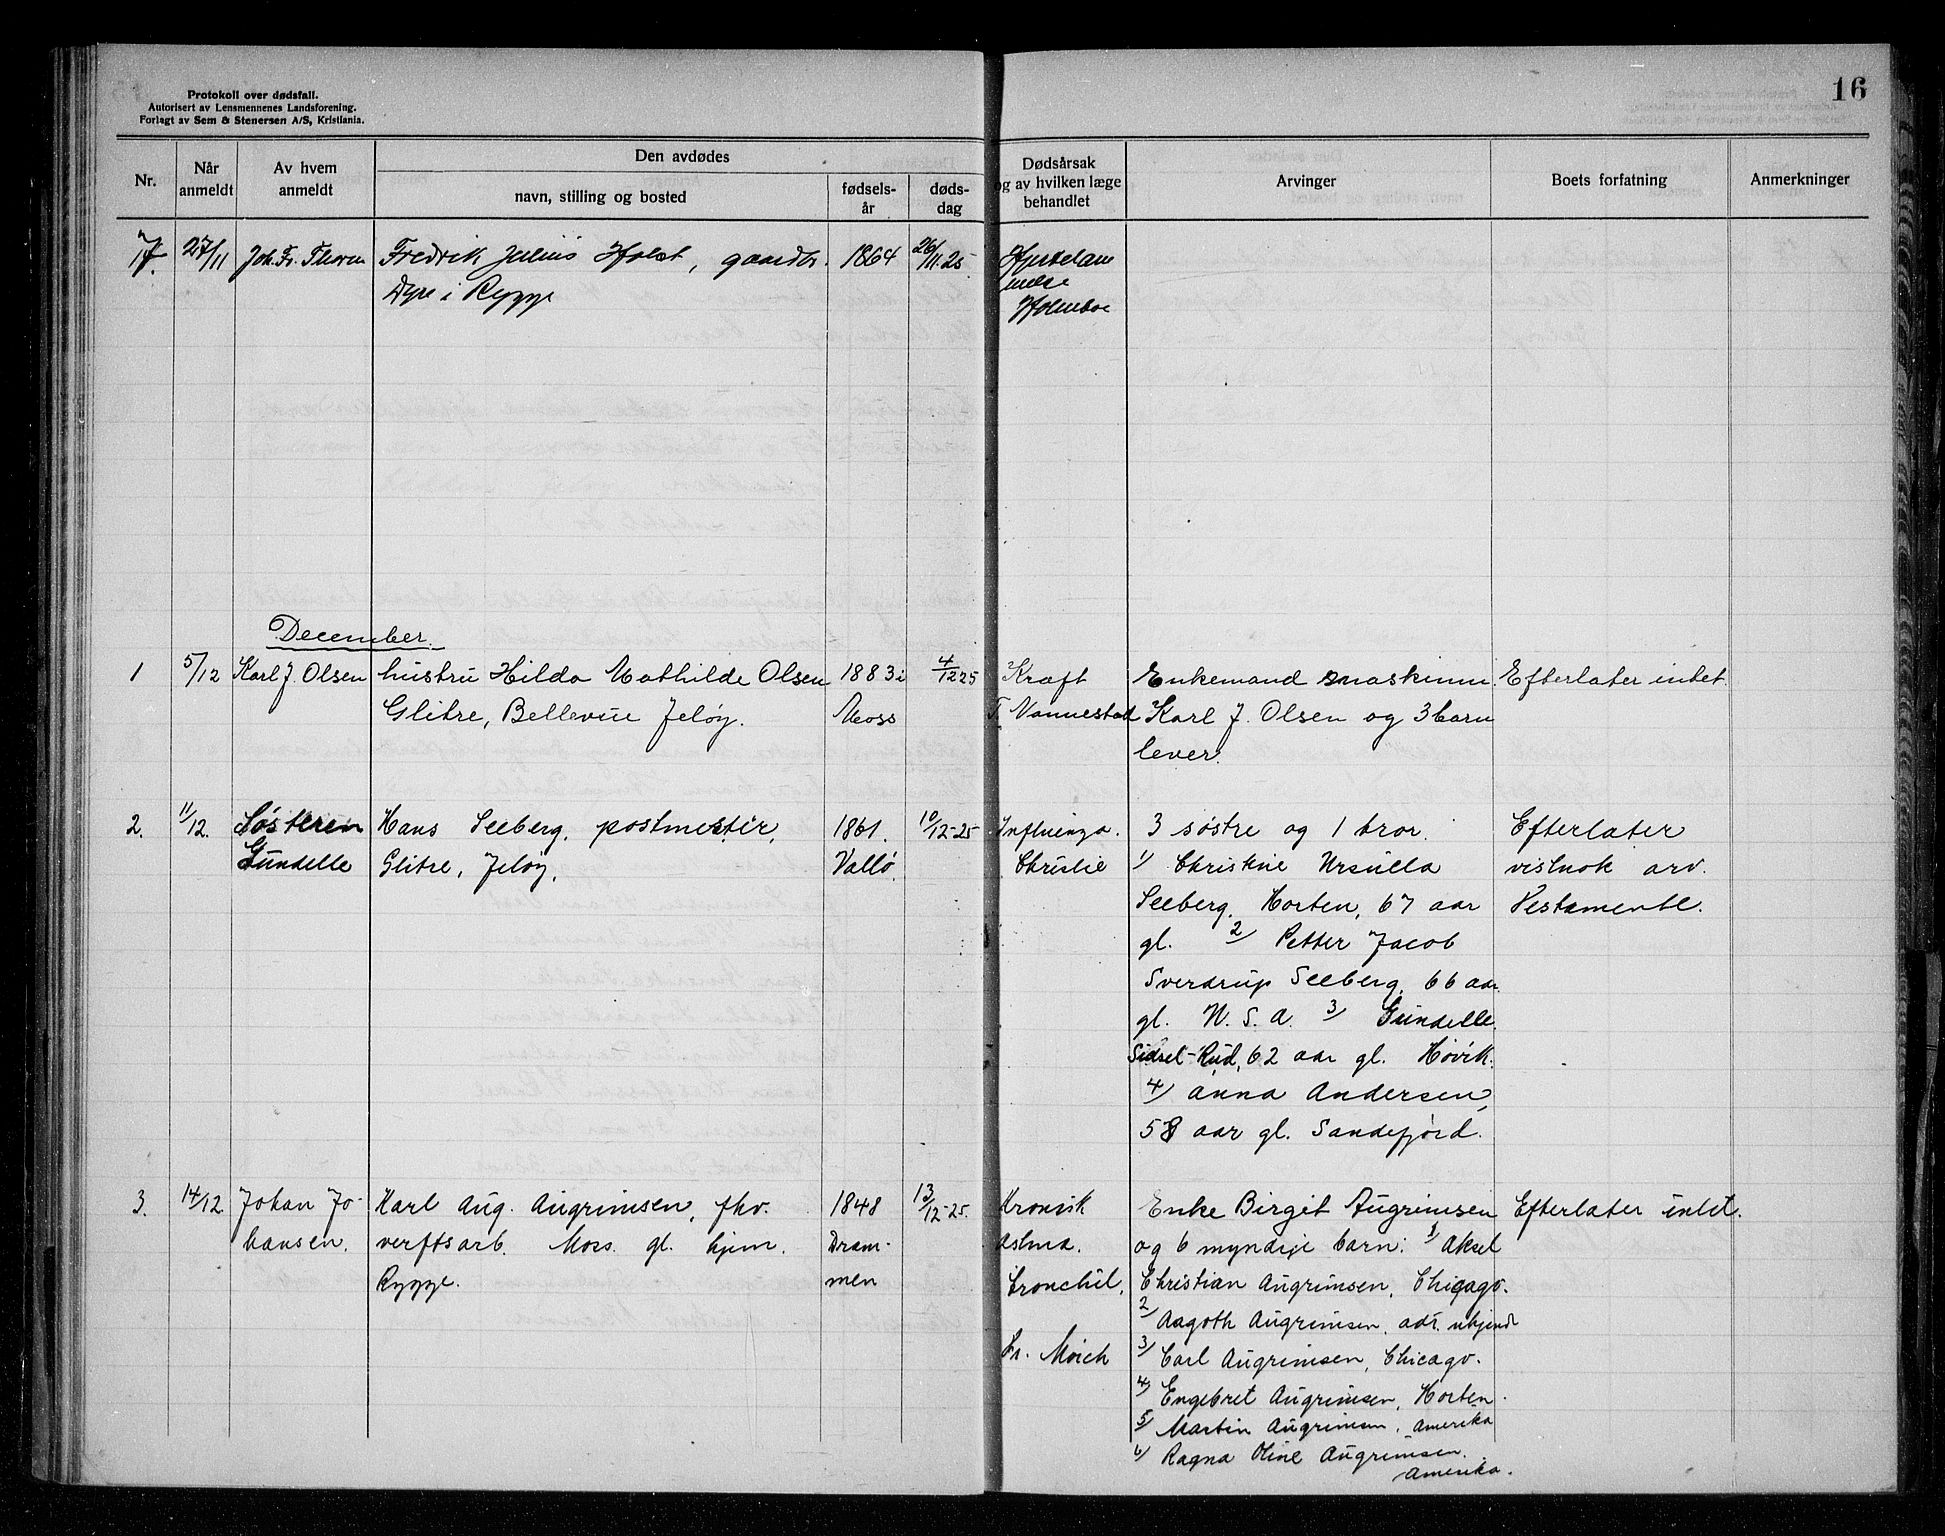 Protokoll over dødsfall.
Autorisert av Lensmennenes Landsforening.
Forlagt av Sem & Stenersen A/S, Kristiania.
16
Nr.
Når anmeldt
Av hvem anmeldt
Den avdødes
navn, stilling og bosted
fødsels-år
døds-dag
Dødsårsak
og av hvilken læge
behandlet
Arvinger
Boets forfatning
Anmerkninger
17. 27/11 Joh. Fr. Thoren Fredrik Julius Holst, gaardbr. 1864 26/11.25
Dyre i Rygge
Hjertelam
melse
Holmboe
December.
1 5/12 Karl J. Olsen hustru Hilda Mathilde Olsen 1883 i 4/12 25 Kræft Enkemand maskinm. Efterlater intet.
Glitre, Bellevue Jeløy. Moss T. Vannestad Karl J. Olsen og 3 barn
lever.
2. 11/12. Søsteren Hans Seeberg, postmester, 1861. 10/12-25 Influenza. 3 søstre og 1 bror. Efterlater
Gundelle Glitre, Jeløy. Vallø. Christie 1/ Christine Ursulla vistnok arv.
Seeberg, Horten, 67 aar Testamente.
gl. 2/ Petter Jacob
Sverdrup Seeberg, 66 aar
gl. U. S. A. 3/ Gundelle
Sidsel-Rud, 62 aar gl. Høvik.
4/ Anna Andersen,
58 aar gl. Sandefjord.
3. 14/12 Johan Jo- Karl Aug. Augrimsen, fhv. 1848 13/12-25. Kronisk Enke Birgit Augrimsen Efterlater intet.
hansen. verftsarb. Moss gl. hjem. Dram- astma. og 6 myndige barn: 1/ Aksel
Rygge. men bronchit. Christian Augrimsen, Chicago.
2/ Aagoth Augrimsen, adr. ukjendt
Dr. Moich 3/ Carl Augrimsen, Chicago.
4/ Engebret Augrimsen, Horten.
5/ Martin Augrimsen, Amerika
6/ Ragna Oline Augrimsen.
Amerika.